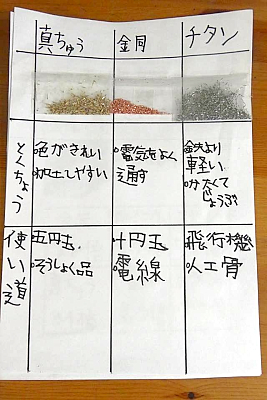 真ちゅう 金同 チタン
とくちょう
色がきれい
加工しやすい
電気をよく
通す
鉄より
軽い
かたくて
じょうぶ
使い道
五円玉
そうしょく品
十円玉
電線
飛行機
人工骨